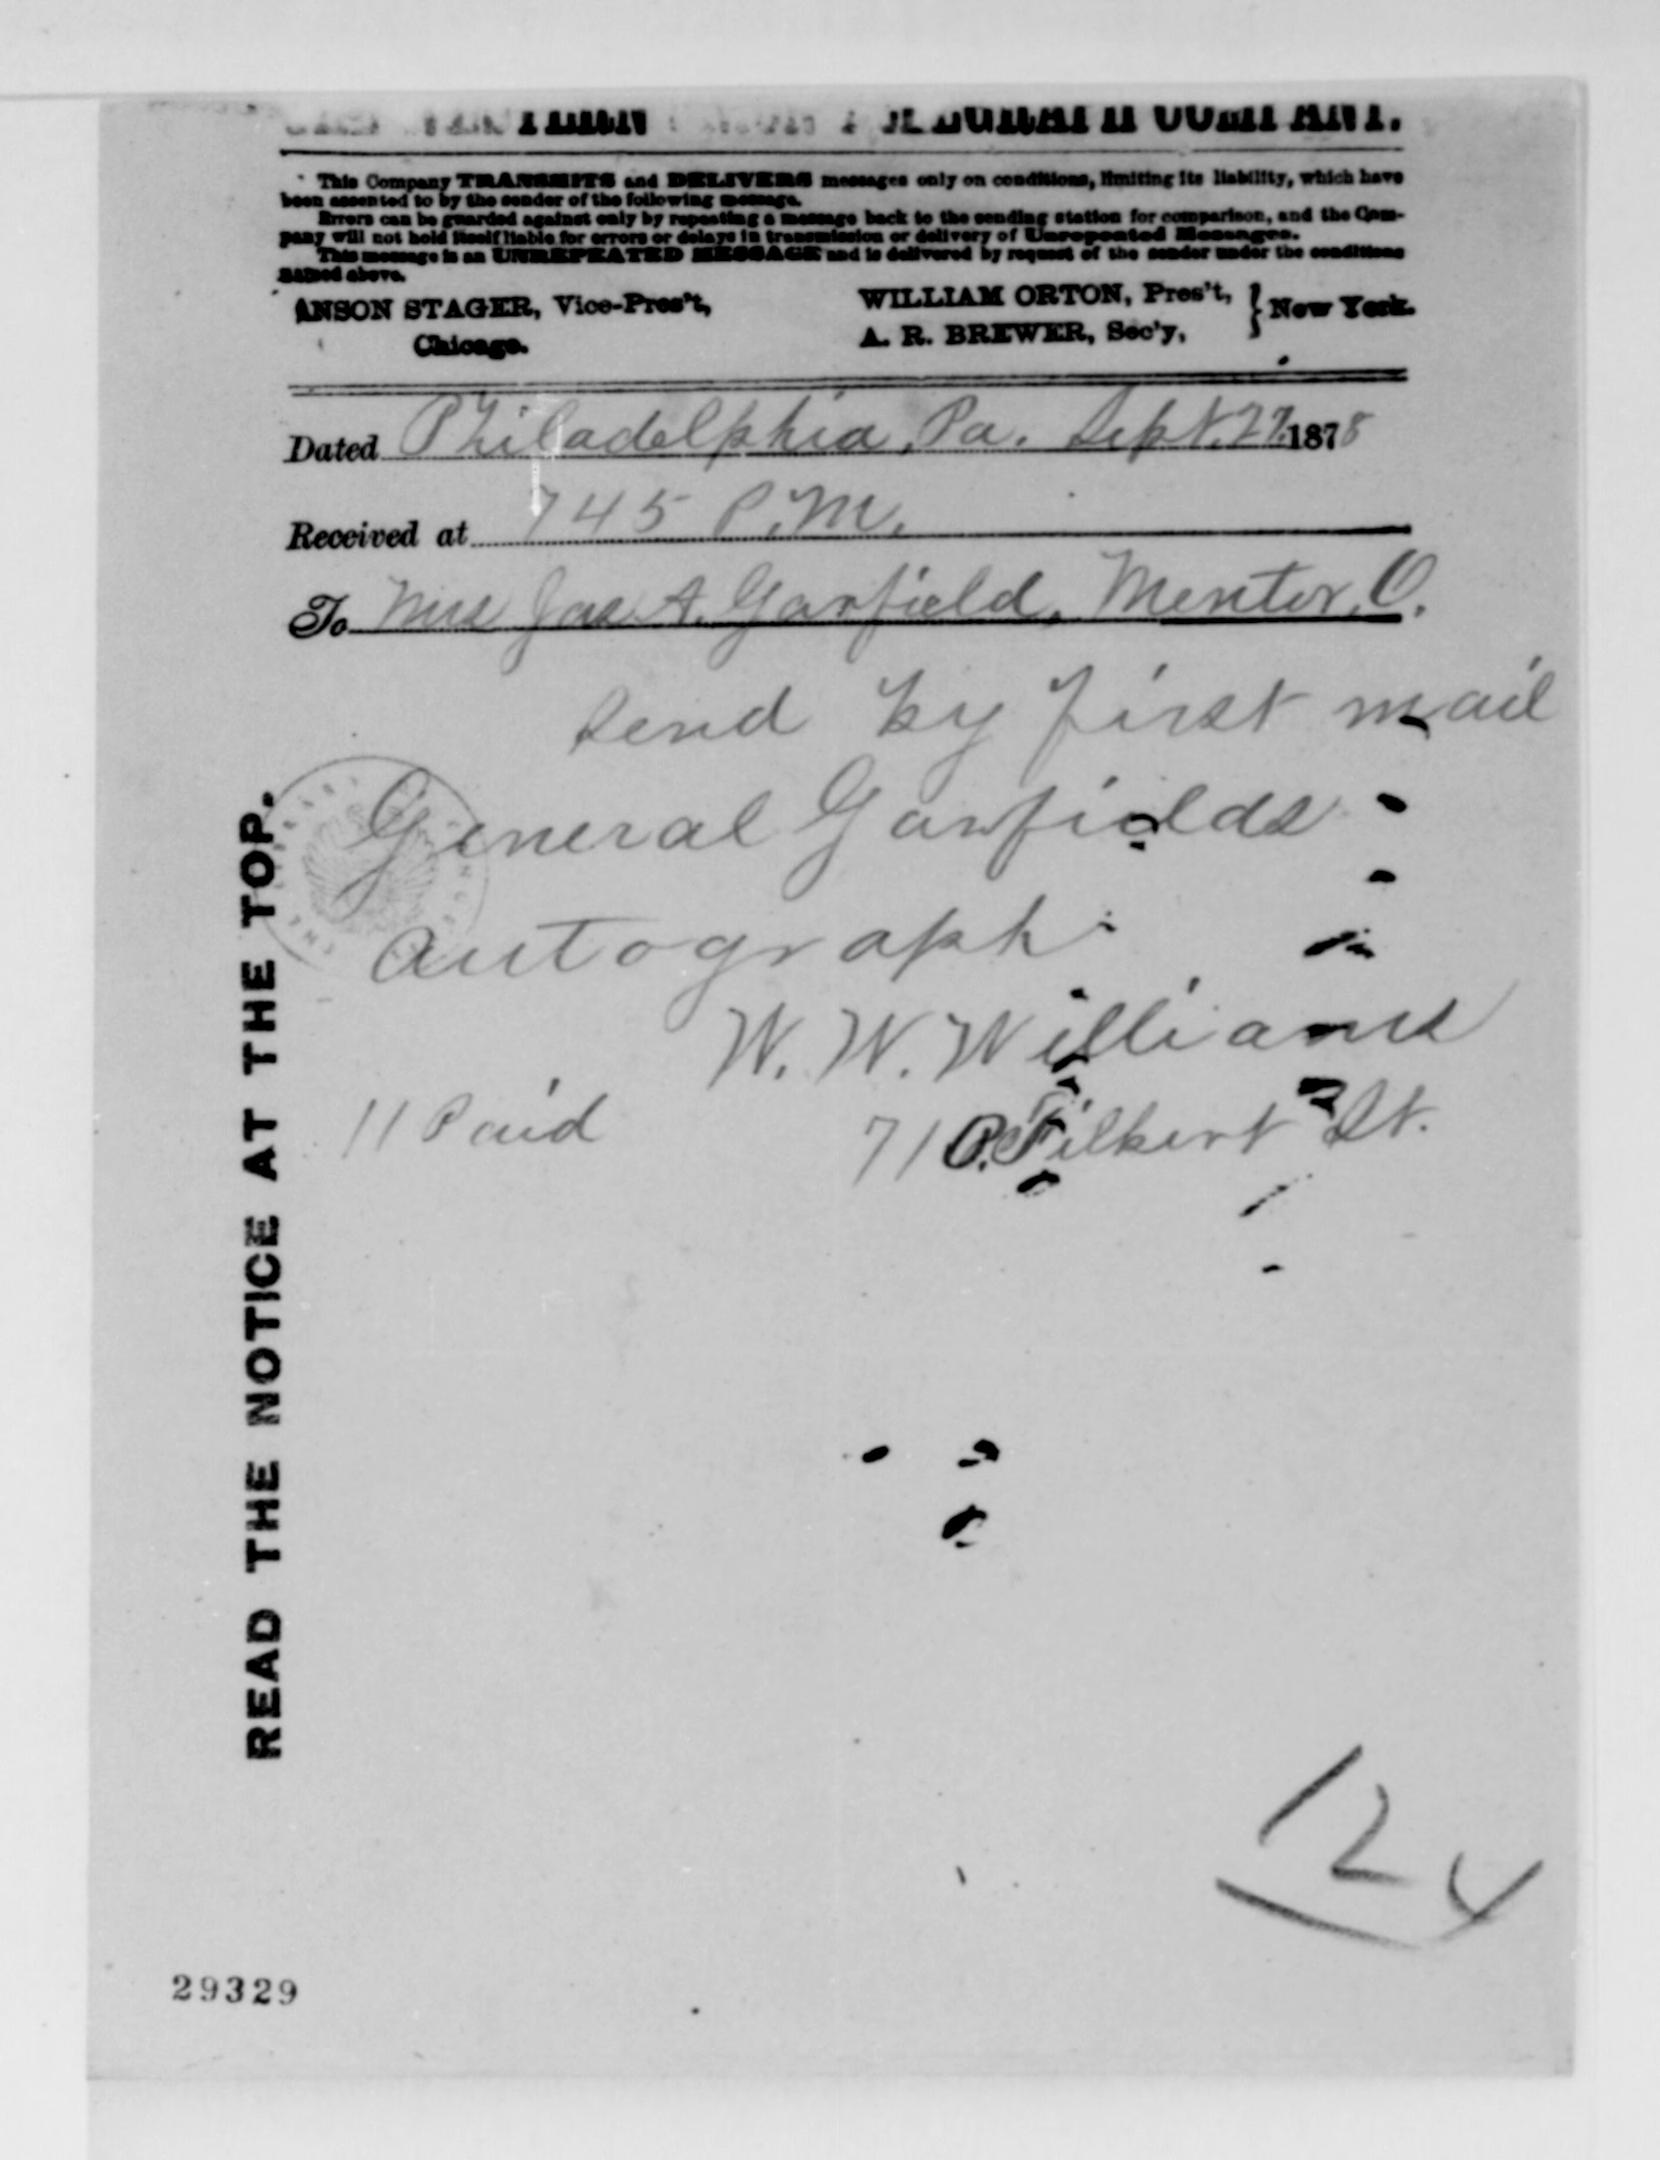 TELEGRAPH COMPANY.
This Company TRANSMITS and DELIVERS messages only on conditions, limiting its liability, which have
been assented to by the sender of the following message.
Errors can be guarded against only by repeating a message back to the sending station for comparison, and the Com-
pany will not hold itself liable for errors or delays in transmission or delivery of Unrepeated Messages.
This message is an UNREPEATED MESSAGE and is delivered by request of the sender under the conditions
named above.
ANSON STAGER, Vice-Pres't,
Chicago.
WILLIAM ORTON, Pres't,
A. R. BREWER, Sec'y,
} New York.
Dated Philadelphia, Pa. Sept. 27. 1878
Received at 745 P.M.
To Mrs Jas A. Garfield, Mentor, O.
Send by first mail
General Garfields
autograph.
W. W. Williams
11 Paid
710 Filbert St.
READ THE NOTICE AT THE TOP.
12
29329